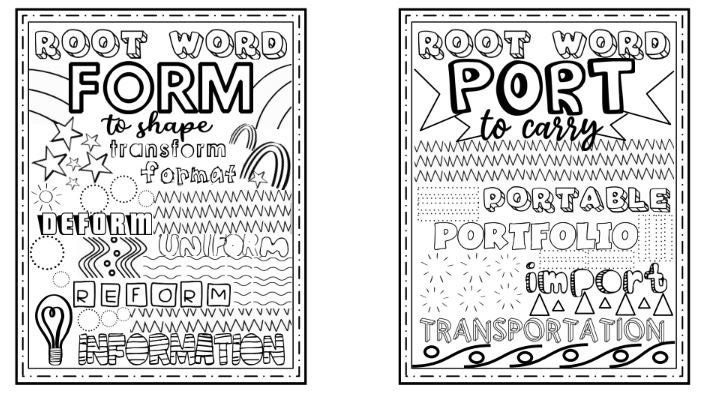 ROOT WORD
FORM
to shape
transform
format
DEFORM
UNIFORM
REFORM
INFORMATION
ROOT WORD
PORT
to carry
PORTABLE
PORTFOLIO
import
TRANSPORTATION